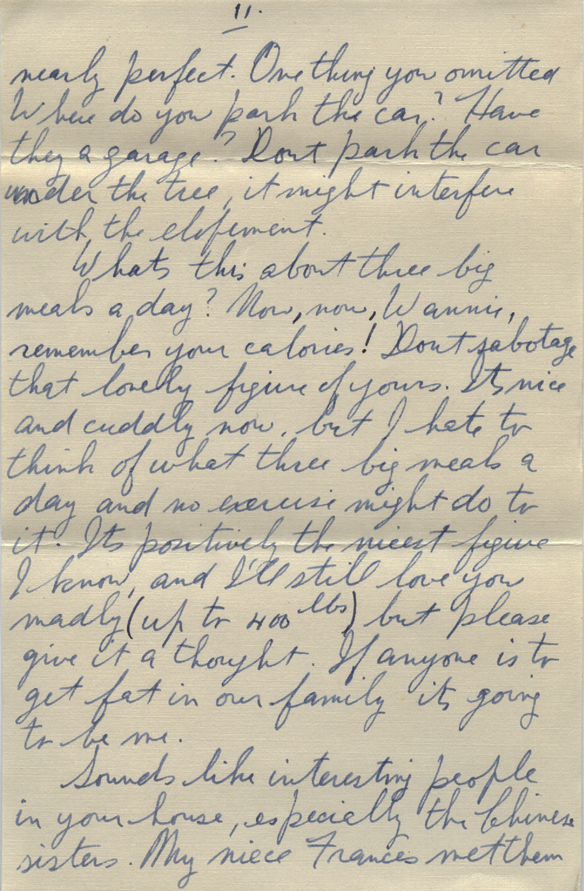 11.
nearly perfect. One thing you omitted
Where do you park the car? Have
they a garage? Dont park the car
under the tree, it might interfere
with the elopement.
Whats this about three big
meals a day? Now, now, Wannie,
remember your calories! Dont sabotage
that lovely figure of yours. Its nice
and cuddly now, but I hate to
think of what three big meals a
day and no exercise might do to
it. Its positively the nicest figure
I know, and I'll still love you
madly (up to 400 lbs) but please
give it a thought. If anyone is to
get fat in our family its going
to be me.
Sounds like interesting people
in your house, especially the Chinese
sisters. My niece Frances met them